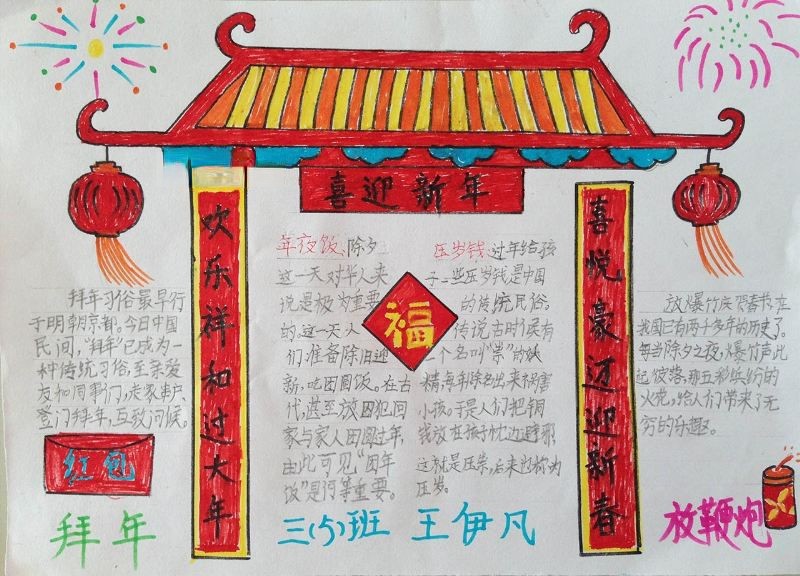 喜迎新年
欢乐祥和过大年
喜悦豪迈迎新春
福
拜年习俗最早行
于明朝京都。今日中国
民间，“拜年”已成为一
种传统习俗，至亲爱
友和同事们，走家串户
登门拜年，互致问候。
红包
拜年
年夜饭，除夕
这一天对华人来
说是极为重要
的。这一天人
们，准备除旧迎
新，吃团圆饭。在古
代，甚至放囚犯回
家与家人团圆过年，
由此可见“团年
饭”是何等重要。
压岁钱，过年给孩
子一些压岁钱是中国
的传统民俗。
传说古时侯有
一个名叫“祟”的妖
精，每年除夕出来祸害
小孩。于是人们把铜
钱放在孩子枕边避邪
这就是压祟，后来
为
压岁。
放爆竹庆贺春节，在
我国已有两千多年的历史了。
每当除夕之夜，爆竹声此
起彼落，那五彩缤纷的
火花，给人们带来了无
穷的乐趣。
放鞭炮
三(5)班 王伊凡